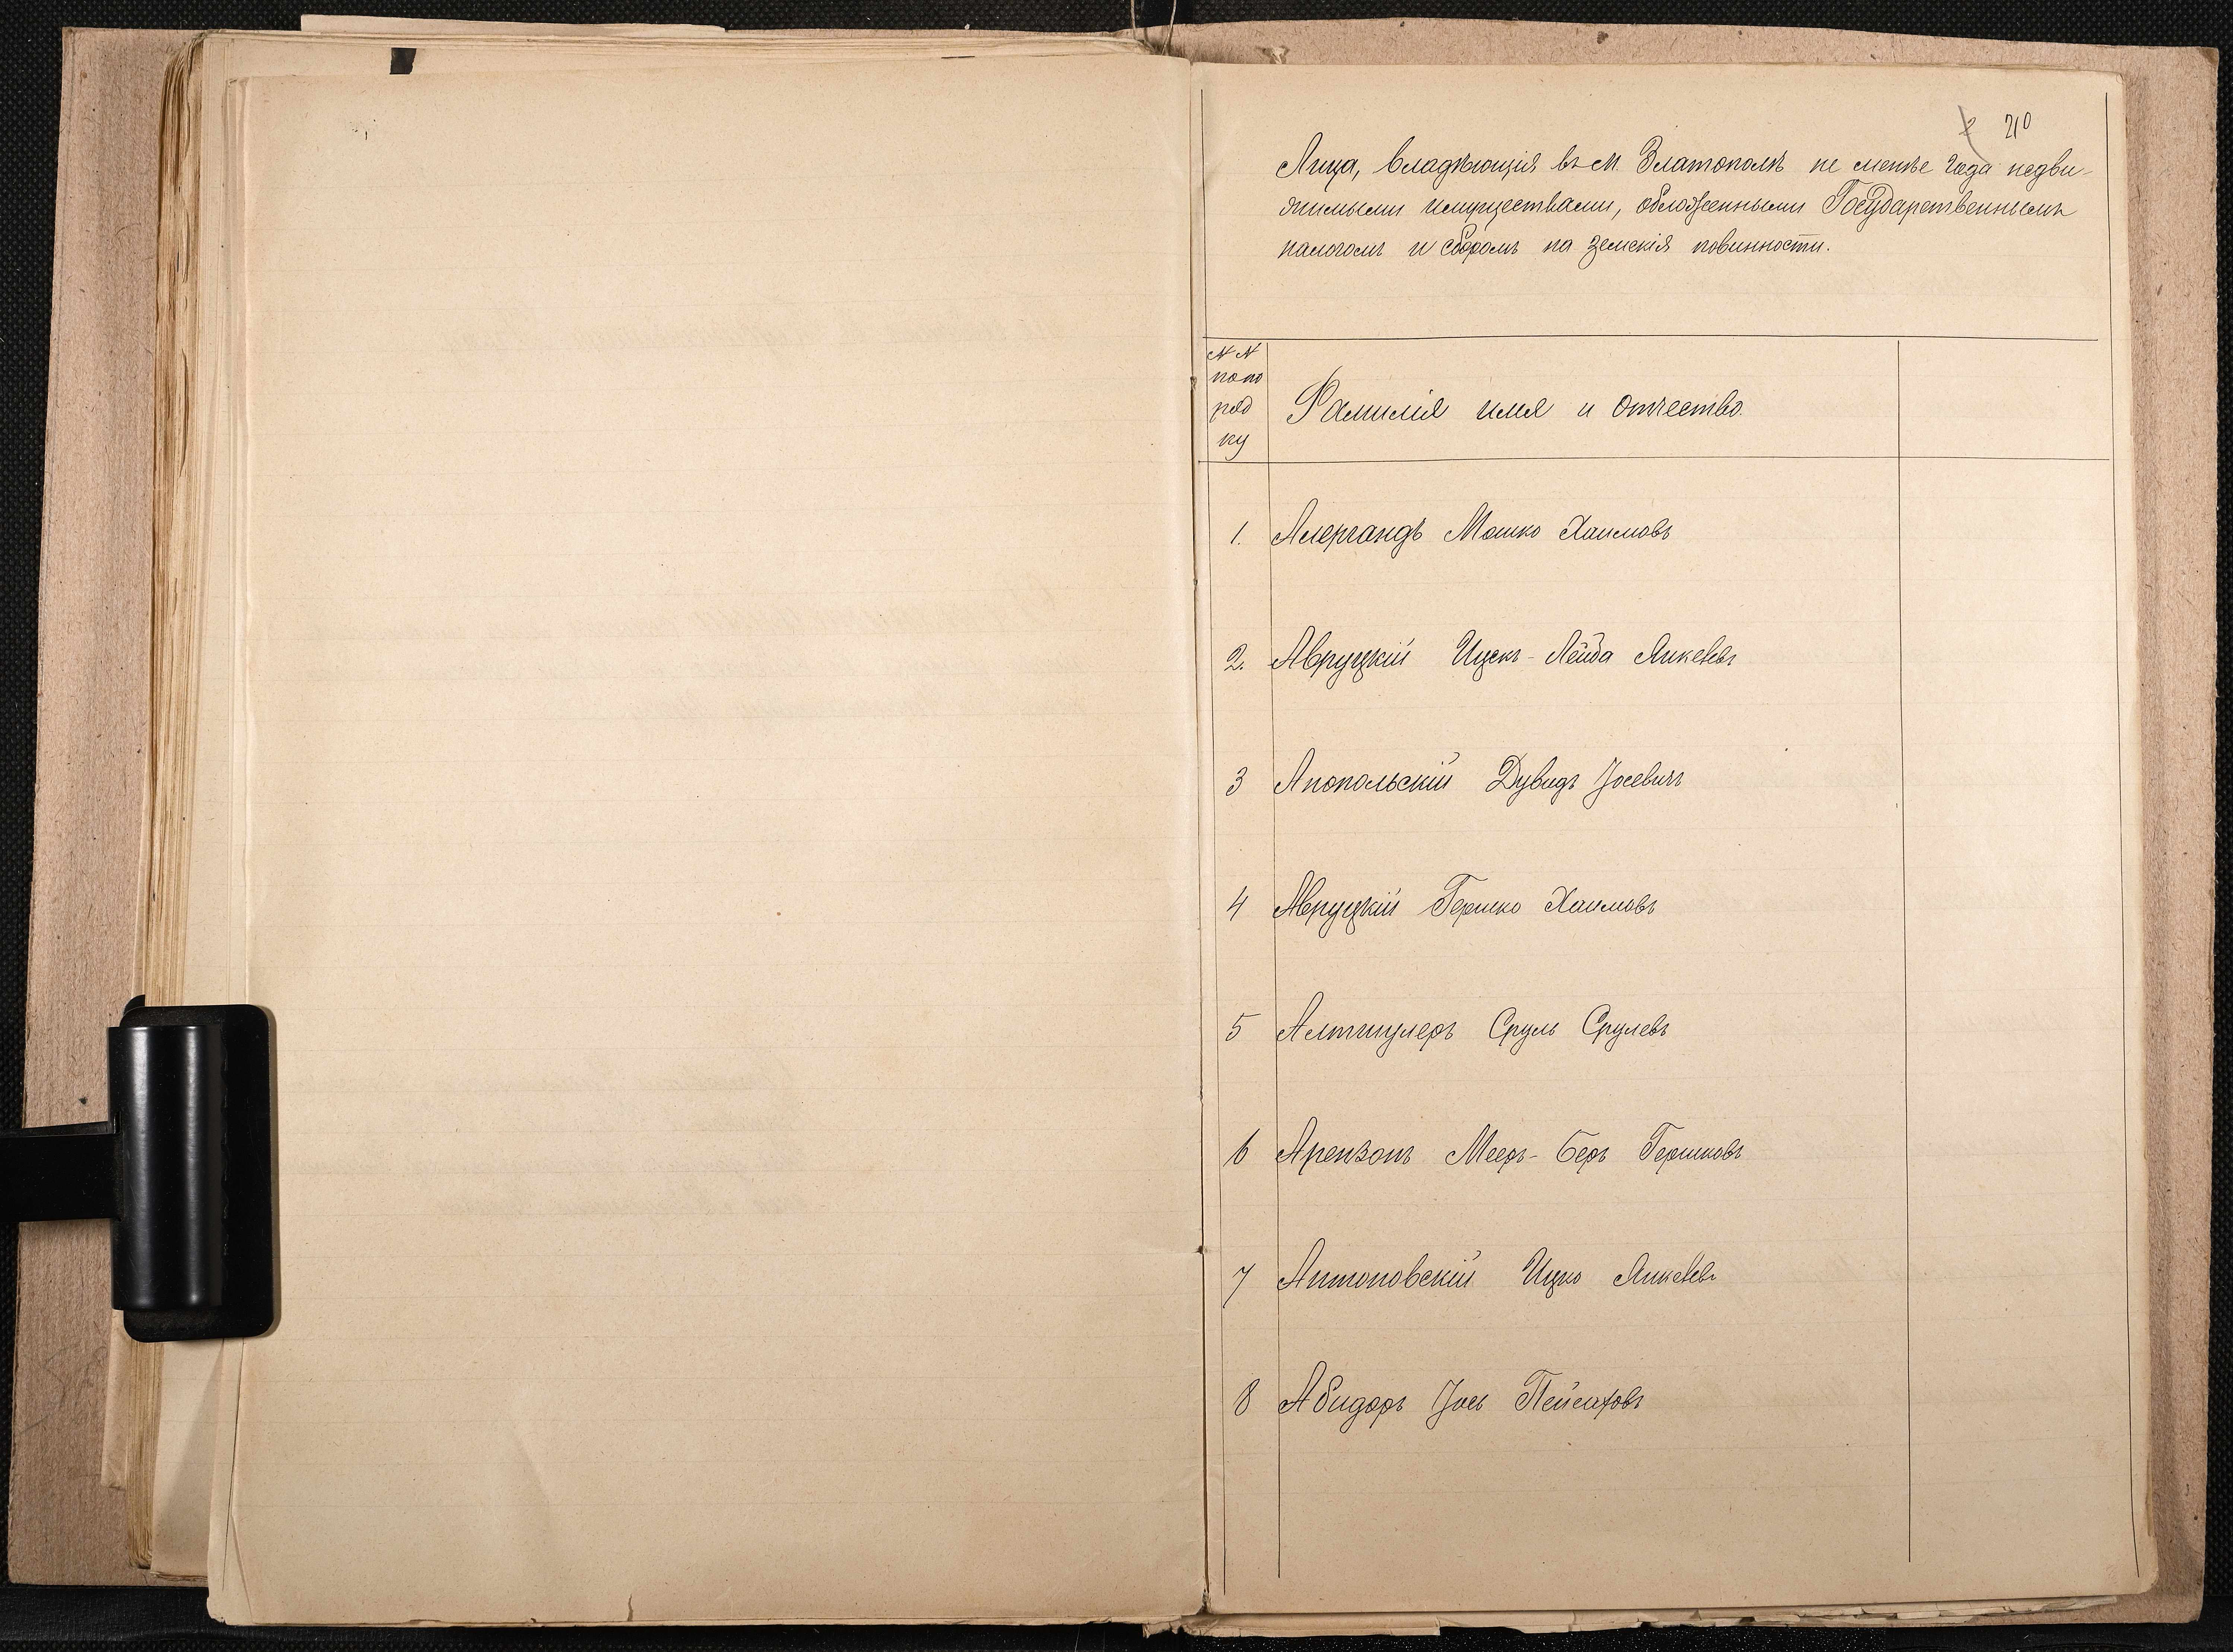 210
Лица, владѣющія въ м. Златополѣ не менѣе года недви-
жимыми имуществами, обложенными Государственнымъ
налогомъ и сборомъ на земскія повинности.
№ №
попо
ряд
ку
Фамилія имя и отчество.
1. Мошко Хаимовъ
2. Авруцкій Ицекъ-Лейба Янкевъ
3 Анопольскій Дувидъ Іосевичъ
4 Авруцкій Гершко Хаимовъ
5 Алтшулеръ Сруль Срулевъ
6 Арензонъ Мееръ-Беръ Гершковъ
7 Антоновскій Ицко Янкевъ
8 Абидоръ Іось Пейсаховъ